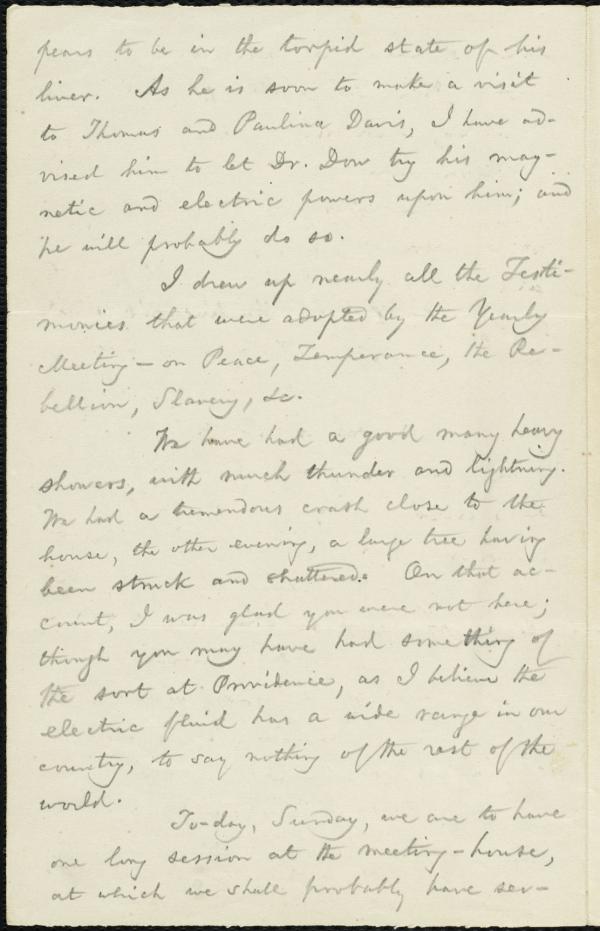 pears to be in the torpid state of his
liver. As he is soon to make a visit
to Thomas and Paulina Davis, I have ad-
vised him to let Dr. Dow try his mag-
netic and electric powers upon him; and
he will probably do so.
I drew up nearly all the Testi-
monies that were adopted by the Yearly
Meeting — on Peace, Temperance, the Re-
bellion, Slavery, &c.
We have had a good many heavy
showers, with much thunder and lightning.
We had a tremendous crash close to the
house, the other evening, a large tree having
been struck and shattered. On that ac-
count, I was glad you were not here;
though you may have had something of
the sort at Providence, as I believe the
electric fluid has a wide range in our
country, to say nothing of the rest of the
world.
To-day, Sunday, we are to have
one long session at the meeting-house,
at which we shall probably have sev-